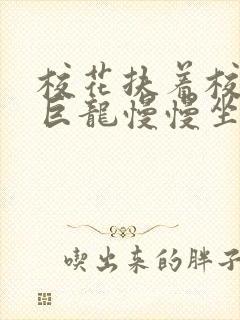 校花扶着校
巨龍慢慢坐
喫出来的胖子